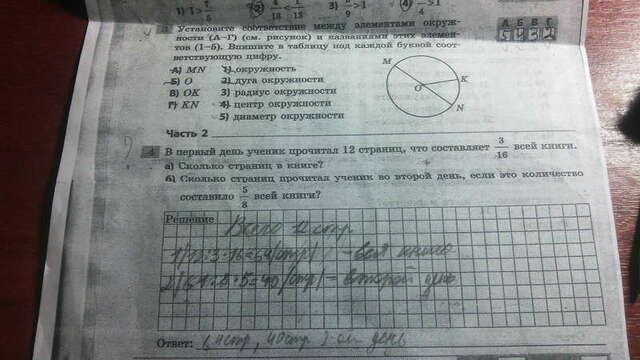 Установите соответствие между элементами окруж-
ности (А—Г) (см. рисунок) и названиями этих элемен-
тов (1—5). Впишите в таблицу под каждой буквой соот-
ветствующую цифру.
А) MN 1) окружность
Б) O 2) дуга окружности
В) OK 3) радиус окружности
Г) KN 4) центр окружности
5) диаметр окружности
M
K
O
N
А Б В Г
5 4 3 2
Часть 2
4 В первый день ученик прочитал 12 страниц, что составляет 3/16 всей книги.
а) Сколько страниц в книге?
б) Сколько страниц прочитал ученик во второй день, если это количество
составило 5/8 всей книги?
Решение
Всего 12 стр
1) 12:3·16=64(стр) – вся книга
2) 64:8·5=40(стр) – второй день
Ответ: 64стр, 40стр день